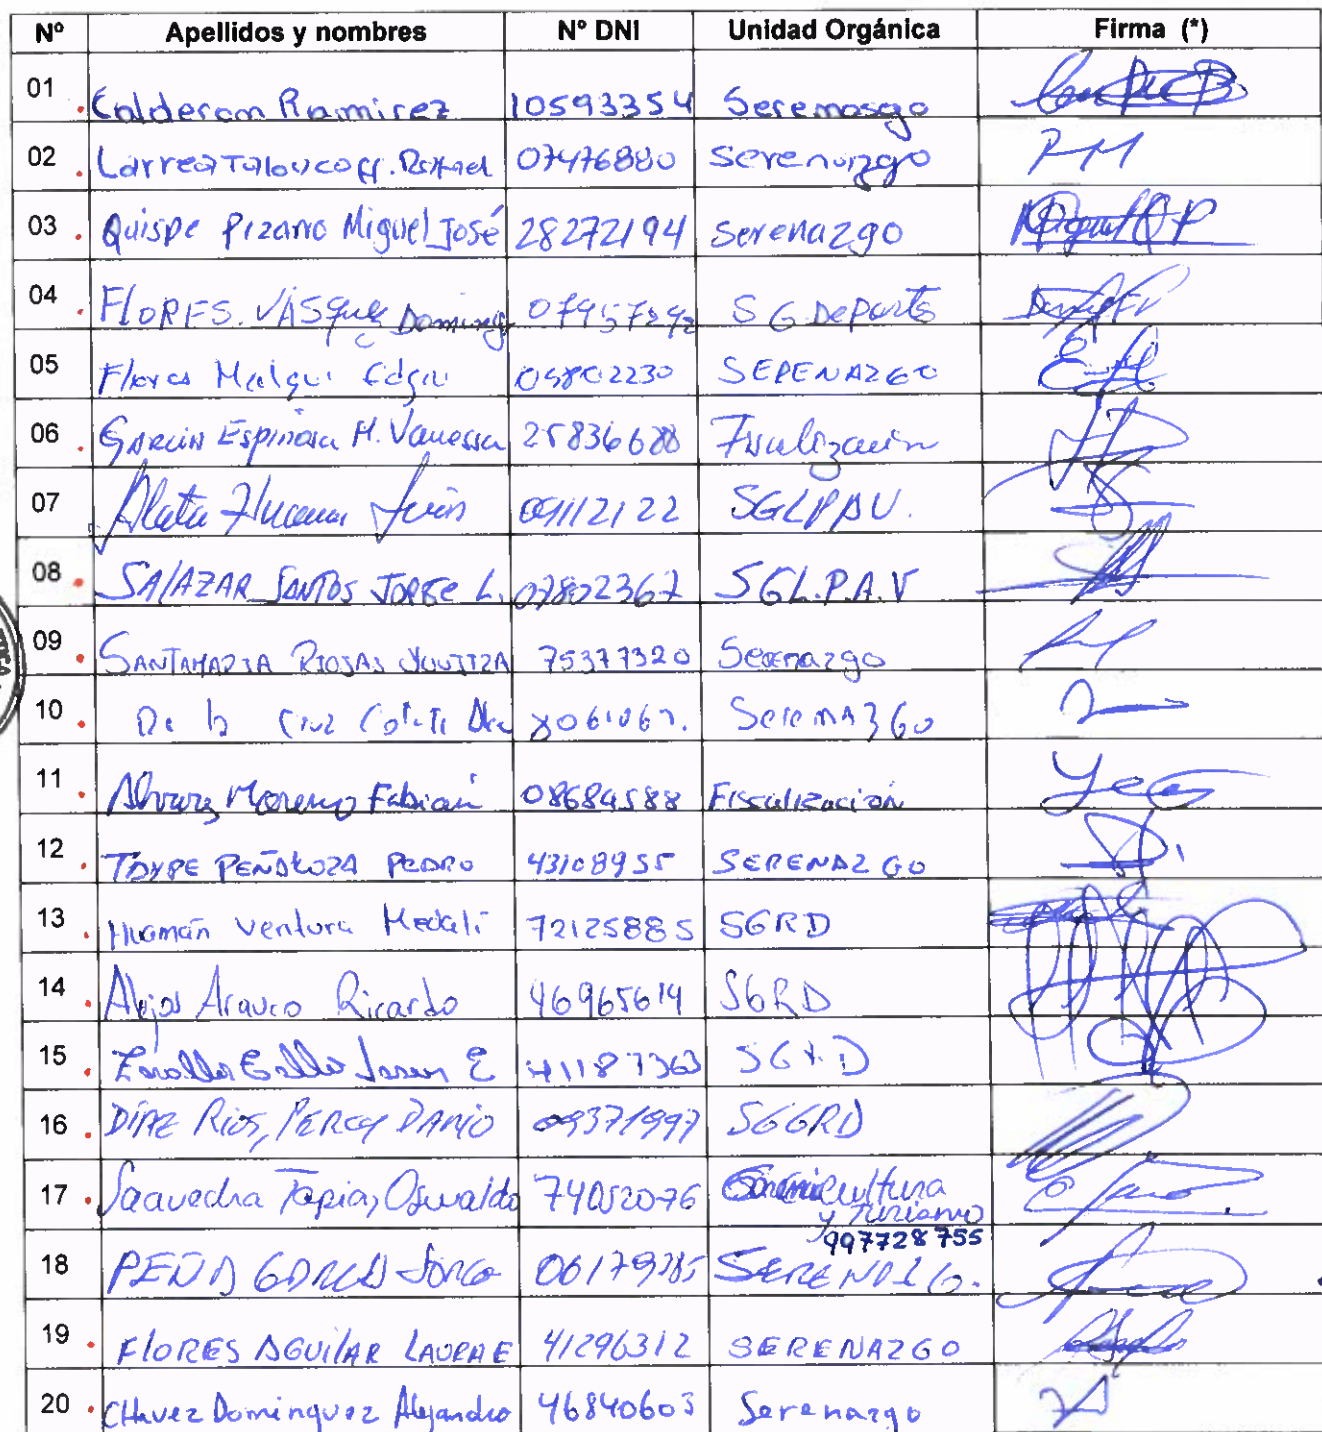 Nº Apellidos y nombres Nº DNI Unidad Orgánica Firma (*)
01 Calderon Ramirez 10593354 Seremosgo
02 Larrea H. Rafael 07476880 serenazgo
03 Quispe Pizarro Miguel José 28272194 serenazgo
04 FLORES. VASquez Domingo S G Deporte
05 Flores Malqui Edgar SERENAZGO
06 GARCIA Espinoza M. Vanessa 25836688 Fiscalización
07 Alata 09112122 SGLPAV.
08 SALAZAR SANTOS JORGE L. 07802367 SGL.P.A.V
09 SANTAMARIA RIOJAS 75377320 Serenazgo
10 De la Cruz Serenazgo
11 Alvarez Moreno Fabian 08684588 Fiscalización
12 TAYPE PEÑALOZA PEDRO 43108955 SERENAZGO
13 Huamán Ventura Medali 72125885 SGRD
14 Alejos Arauco Ricardo 46965614 SGRD
15 41187363
16 DÍAZ RIOS, PERCY DARIO 09371997 SGGRD
17 Saavedra Tapia, Oswaldo 74052076 cultura
y Turismo
997728755
18 PEÑA GARCIA JORGE
19 FLORES AGUILAR 41296312 SERENAZGO
20 CHavez Dominguez Alejandro 46840603 Serenazgo